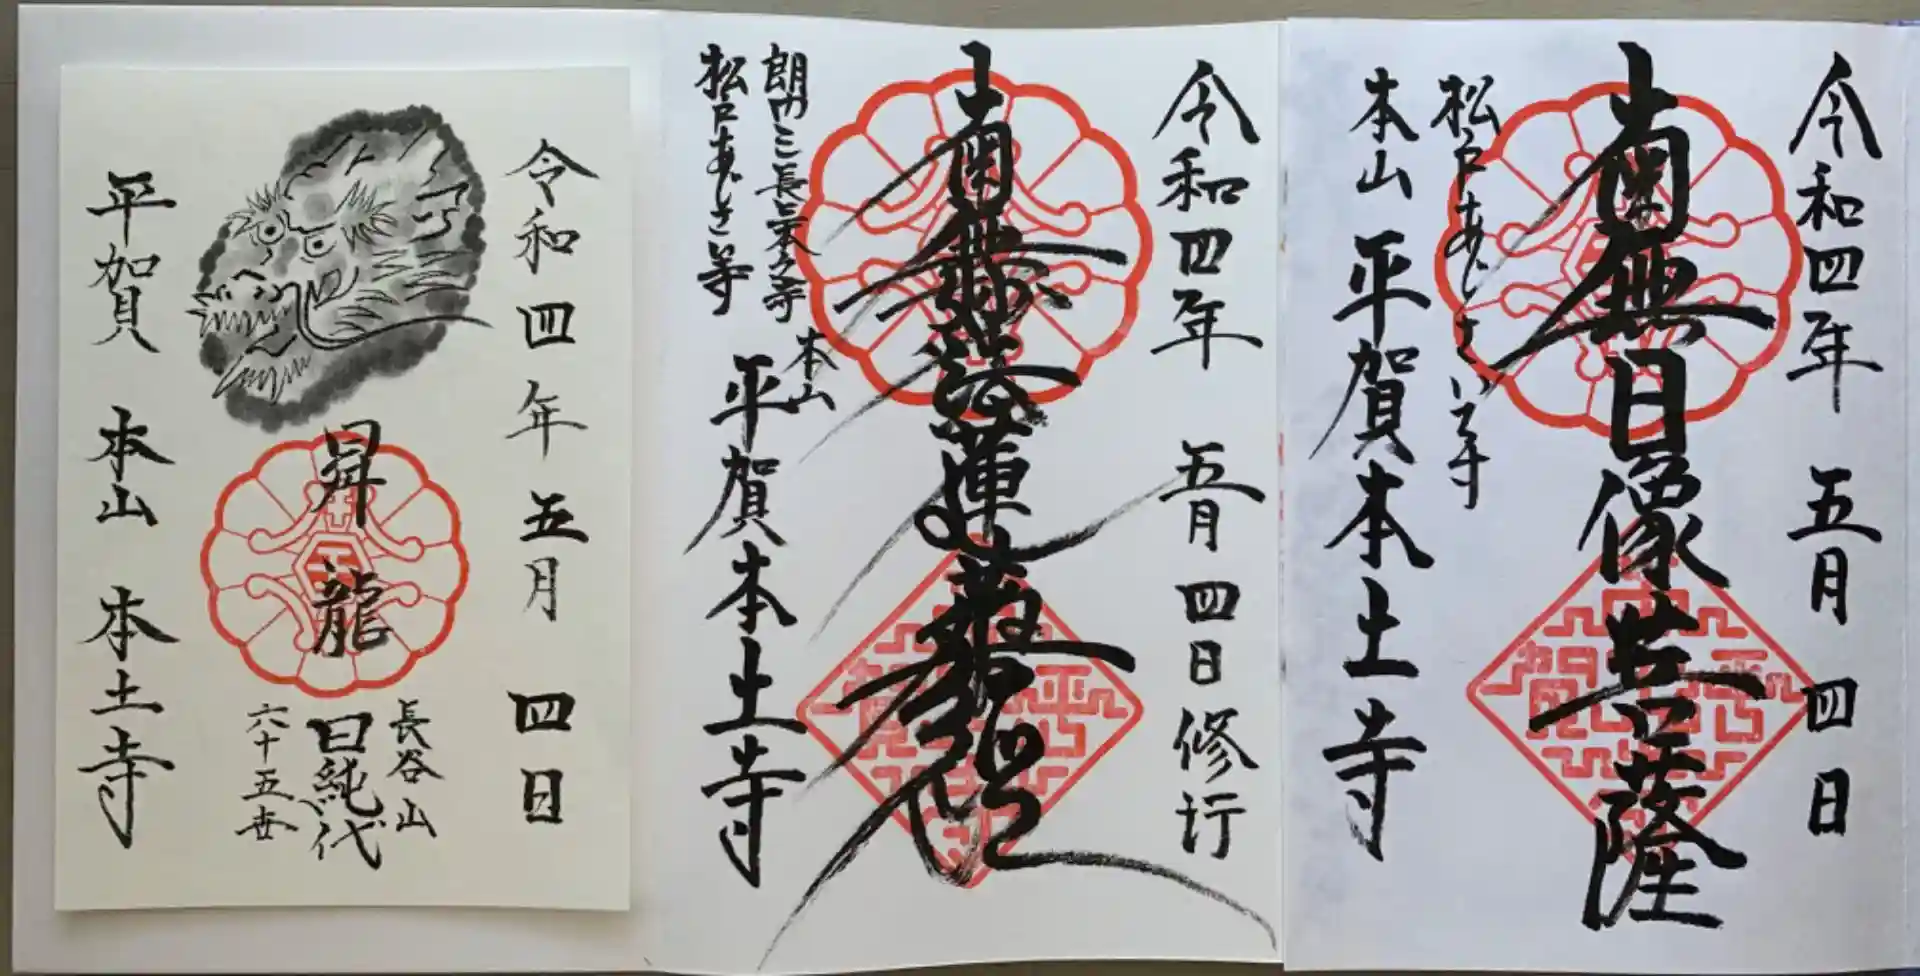 令和四年 五月 四日
南無日像菩薩
松戸あじさいでら
本山 平賀本土寺
令和四年 五月 四日 修行
南無妙法蓮華経
朗門三長三本之寺
松戸あじさい寺
本山
平賀本土寺
令和四年 五月 四日
昇龍
長谷山
日純代
六十五世
平賀 本山 本土寺